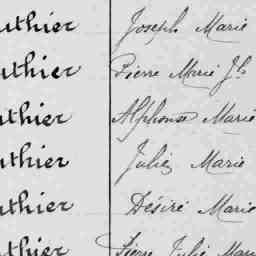 uthier Joseph Marie
uthier Pierre Marie Jh
uthier Alphonse Marie
uthier Jules Marie
uthier Désiré Marie
uthier Pierre Julie Mar